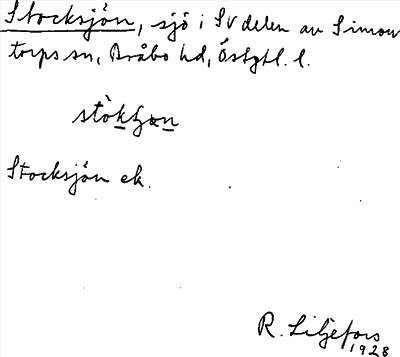 Stocksjön, sjö i SV delen av Simons
torps sn, Bråbo hd, Östgtl. l.
Stocksjön ek.
R. Liljefors
1928